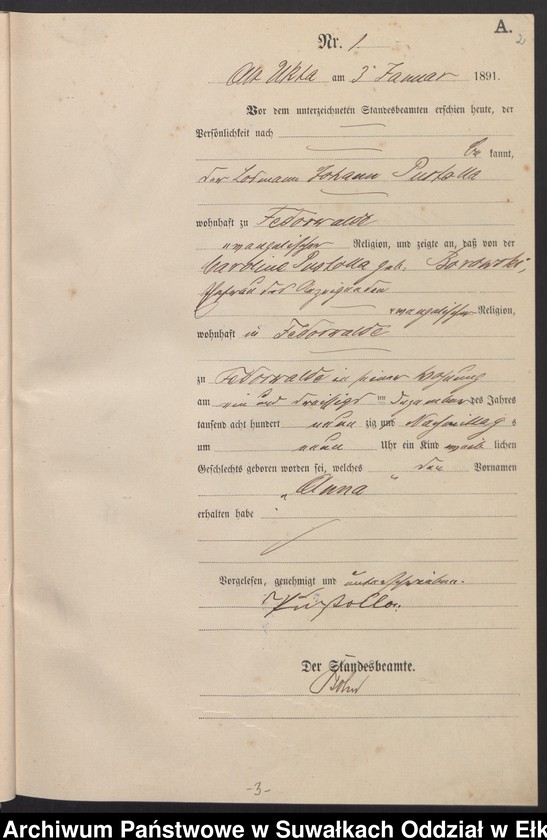 A.
2
Nr. 1
Alt Ukta am 3 Januar 1891.
Vor dem unterzeichneten Standesbeamten erschien heute, der
Persönlichkeit nach
be kannt,
der Losmann Johann Pustolla
wohnhaft zu Fedorwalde
evangelischer Religion, und zeigte an, daß von der
Caroline Pustolla geb. Borowski,
Ehefrau des Anzeigenden
evangelischer Religion,
wohnhaft in Fedorwalde
zu Fedorwalde in seiner Wohnung
am ein und dreißigst en Dezember des Jahres
tausend acht hundert neun zig und Nachmittag s
um neun Uhr ein Kind weib lichen
Geschlechts geboren worden sei, welches den Vornamen
„Anna“
erhalten habe
Vorgelesen, genehmigt und unterschrieben.
Pustolla.
Der Standesbeamte.
-3-
Archiwum Państwowe w Suwałkach Oddział w Ełk